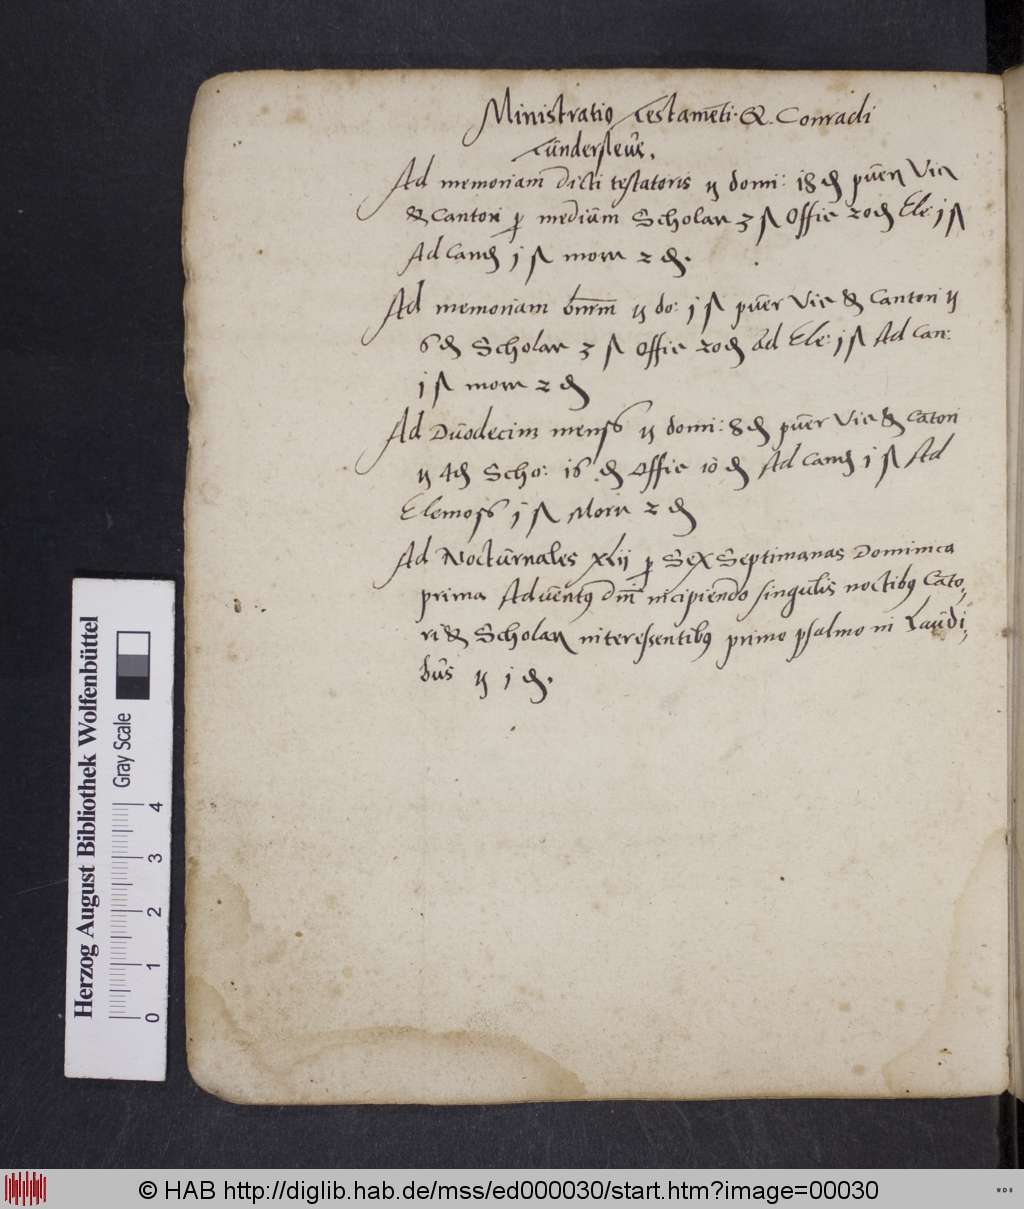 Ministratio Testamēti Q. Conradi
Tūnderslevē.
Ad memoriam dicti testatoris ij domi: 18 ₰ pūeri Vic
& Cantori ꝑ mediūm Scholar 3 ß Offic 20 ₰ Ele: j ß
Ad Cand j ß morn 2 ₰.
Ad memoriam bnm̄ ij do: j ß pūer Vic & Cantori ij
6 ₰ Scholar 3 ß Offic 20 ₰ ad Ele: j ß Ad Can:
j ß morn 2 ₰
Ad Dūodecim mens ij domi: 8 ₰ pūer Vic & Cātori
ij 4 ₰ Scho: 16 ₰ Offic 10 ₰ Ad Cand j ß Ad
Elemos j ß Morn 2 ₰
Ad Noctūrnales xlij ꝑ Sex Septimanas Dominica
prima Adventus Dn̄i incipiendo singūlis noctibus Cāto,
ri & Scholar interessentibus primo psalmo in Laūdi,
būs ij j ₰.
Herzog August Bibliothek Wolfenbüttel
Gray Scale
0 1 2 3 4
© HAB http://diglib.hab.de/mss/ed000030/start.htm?image=00030